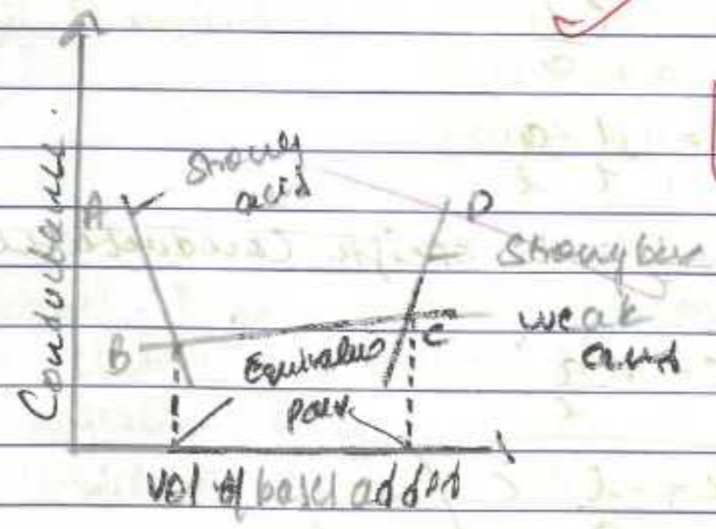 Conductance.
A
Strong
acid
D
Strong base
B
C
weak
acid
Equivalence
Point
vol of base added